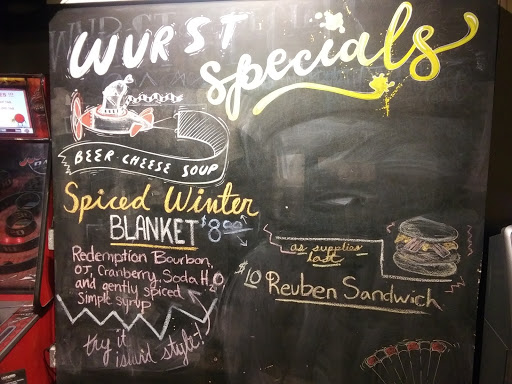 WURST
Specials
BEER CHEESE SOUP
Spiced Winter
BLANKET $8.00
Redemption Bourbon,
OJ, Cranberry, Soda H2O,
and gently spiced
simple syrup
try it
island style!
as supplies
last
$10 Reuben Sandwich